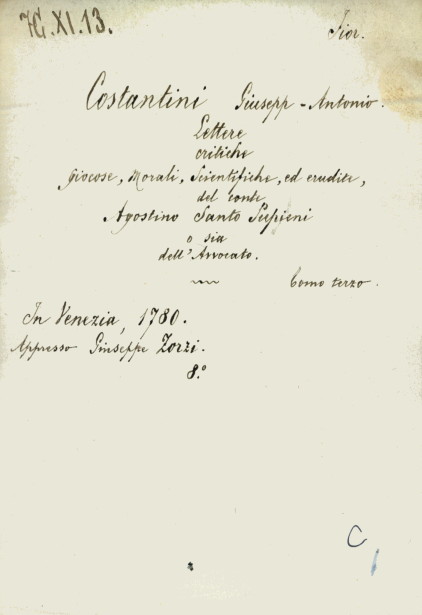 7G.XI.13.
Fior.
Costantini Giusepp-Antonio.
Lettere
critiche
giocose, Morali, Scientifiche, ed erudite,
del conte
Agostino Santo Pupieni
o sia
dell'Avvocato.
Tomo terzo.
In Venezia, 1780.
Appresso Giuseppe Zorzi.
8.º
C